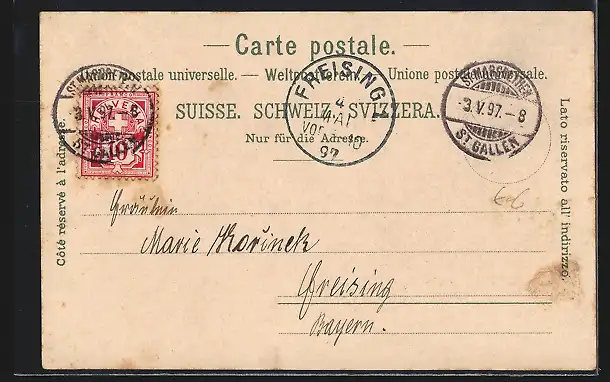 — Carte postale. —
Union postale universelle. — Weltpostverein. — Unione postale universale.
SUISSE. SCHWEIZ. SVIZZERA.
Nur für die Adresse.
Côté réservé à l'adresse.
Lato riservato all' indirizzo.
HELVETIA
10
3.V.97.
FREISING
4
MAI
Vor
97
ST. MARGRETHEN
3.V.97.-8
ST. GALLEN
Fräulein
Marie Kořinek
Freising
Bayern.